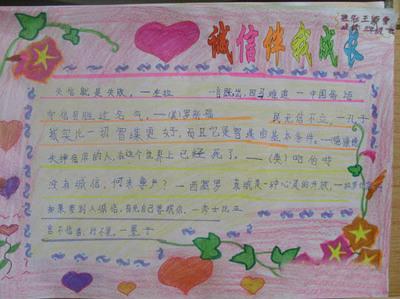 诚信伴我成长
失信就是失败。—左拉 一言既出，四马难追 —中国俗语
守信胜过名气。—(美)罗斯福 民无信不立。—孔子
诚实比一切智谋更好，而且它是智谋的基本条件。—康德
失掉信用的人，在这个世界上已经死了。—(英)哈伯特
没有诚信，何来尊严？—西塞罗 真诚是一种心灵的开放。
如果要别人诚信，首先自己要诚信。—莎士比亚
言不信者，行不果。—墨子